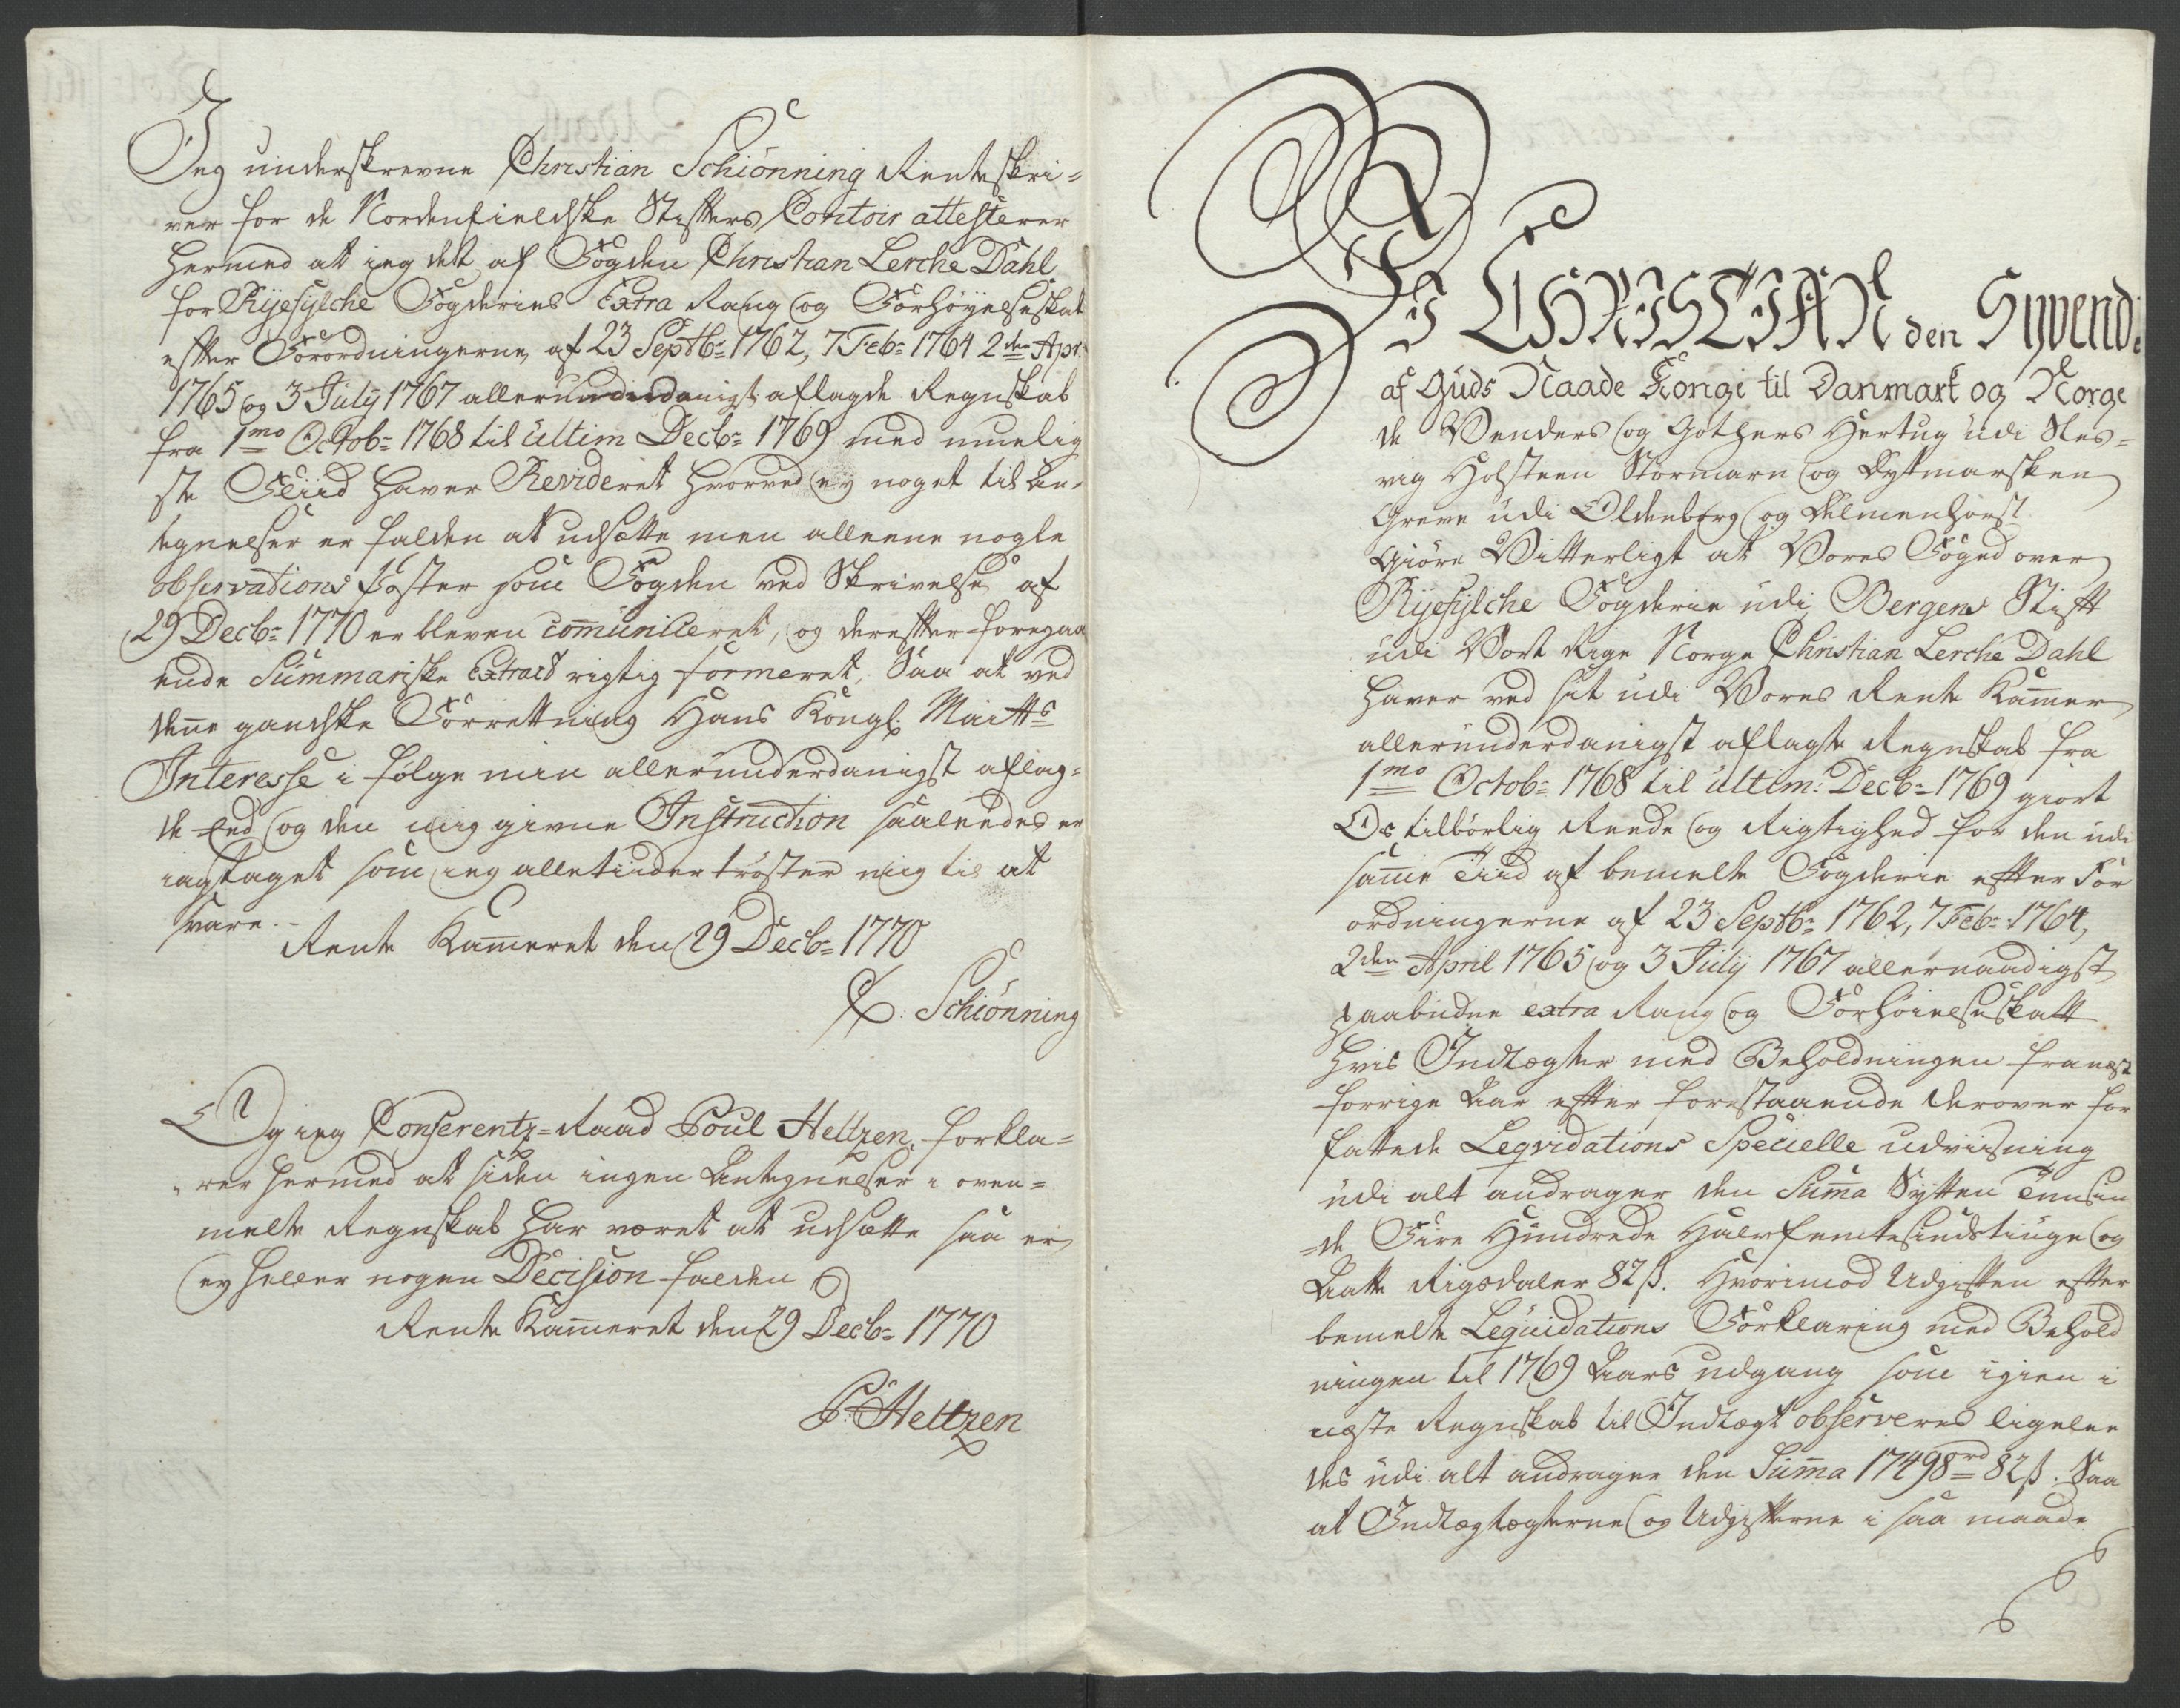 Jeg underskrevne Christian Schiönning Renteskri=
ver for de Nordenfieldske Stifters Contoir attesterer
hermed at jeg det af Fogden Christian Lerche Dahl
for Ryefylche Fogderies Extra Rang og Forhøyelse skat
efter Forordningerne af 23 Septbr: 1762, 7 Feb: 1764 2den Apr:
1765 og 3 July 1767 allerunderdanigst aflagde Regnskab
fra 1mo Octob: 1768 til ultim Decb: 1769 med muelig
ste Fliid haver Revideret hvorved ey noget til An-
tegnelser er falden at udsætte men alleene nogle
observations Poster som Fogden ved Skrivelse af
29 Decb: 1770 er bleven communiceret, og derefter foregaa
ende Summariske Extract rigtig formeret, Saa at ved
denne gandske Forrettning Hans Kongl: Maitts
Interesse i følge min allerunderdanigst aflag=
de Eed og den mig givne Instruction saaledes er
iagtaget som jeg alletiider trøster mig til at
svare.
Rente Kammeret den 29 Decb: 1770
C. Schiönning
Og jeg Conferentz=Raad Poul Heltzen forkla=
rer hermed at siden ingen Antegnelser i oven=
melte Regnskab har været at udsætte saa er
ey heller nogen Decision falden
Rente Kammeret den 29 Decb: 1770
P. Heltzen
Vi CHRISTIAN den Syvende
af Guds Naade Konge til Danmark og Norge
de Venders og Gothers Hertug udi Sles=
vig Holsteen Stormarn og Dytmarsken
Greve udi Oldenborg og Delmenhorst
Giöre Vitterligt at Vores Foged over
Ryefylche Fogderie udi Bergens Stift
udi Vort Rige Norge Christian Lerche Dahl
haver ved sit udi Vores Rente Kammer
allerunderdanigst aflagte Regnskab fra
1mo Octob: 1768 til ultim: Decb: 1769 giort
Os tilbørlig Reede og Rigtighed for den udi
samme Tiid af bemelte Fogderie efter For
ordningerne af 23 Septb: 1762, 7 Feb: 1764,
2den April 1765 og 3 July 1767 allernaadigst
paabudne extra Rang og Forhøielse skatt
hvis Indtægter med Beholdningen fra nest
forrige Aar efter forestaaende derover for
fattede Leqvidations Specielle udviisning
udi alt andrager den Summa Sytten Tusin
=de Fire Hundrede Halvfemtesindstiuge og
Aatte Rigsdaler 82 ß. Hvorimod Udgiften efter
bemelte Leqvidations Forklaring med Behold
ningen til 1769 Aars udgang som igien i
næste Regnskab til Indtægt observeres ligelee
des udi alt andrager den Summa 17498 rd 82 ß. Saa
at Indtægtægterne og Udgifterne i saa maade